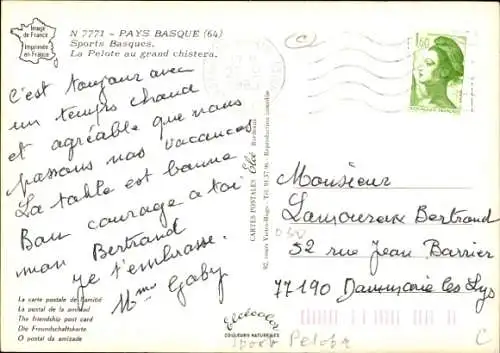 Image
de France
Imprimée
en France
N 7771 - PAYS BASQUE (64)
Sports Basques.
La Pelote au grand chistera.
C
1,60
C'est toujours avec
un temps chaud
et agréable que nous
passons nos vacances
La table est bonne
Bon courage a toi
mon Bertrand
Je t'embrasse.
Mme Gaby
CARTES POSTALES Elcé Bordeaux
92, cours Victor-Hugo - Tél. 91.37.96 - Reproduction interdite
Monsieur
Lamouroux Bertrand
52 rue Jean Barrier
77190 Dammarie les Lys
La carte postale de l'amitié
La postal de la amistad
The friendship post card
Die Freundschaftskarte
O postal da amizade
elcécolor
COULEURS NATURELLES
Sport Pelote
C